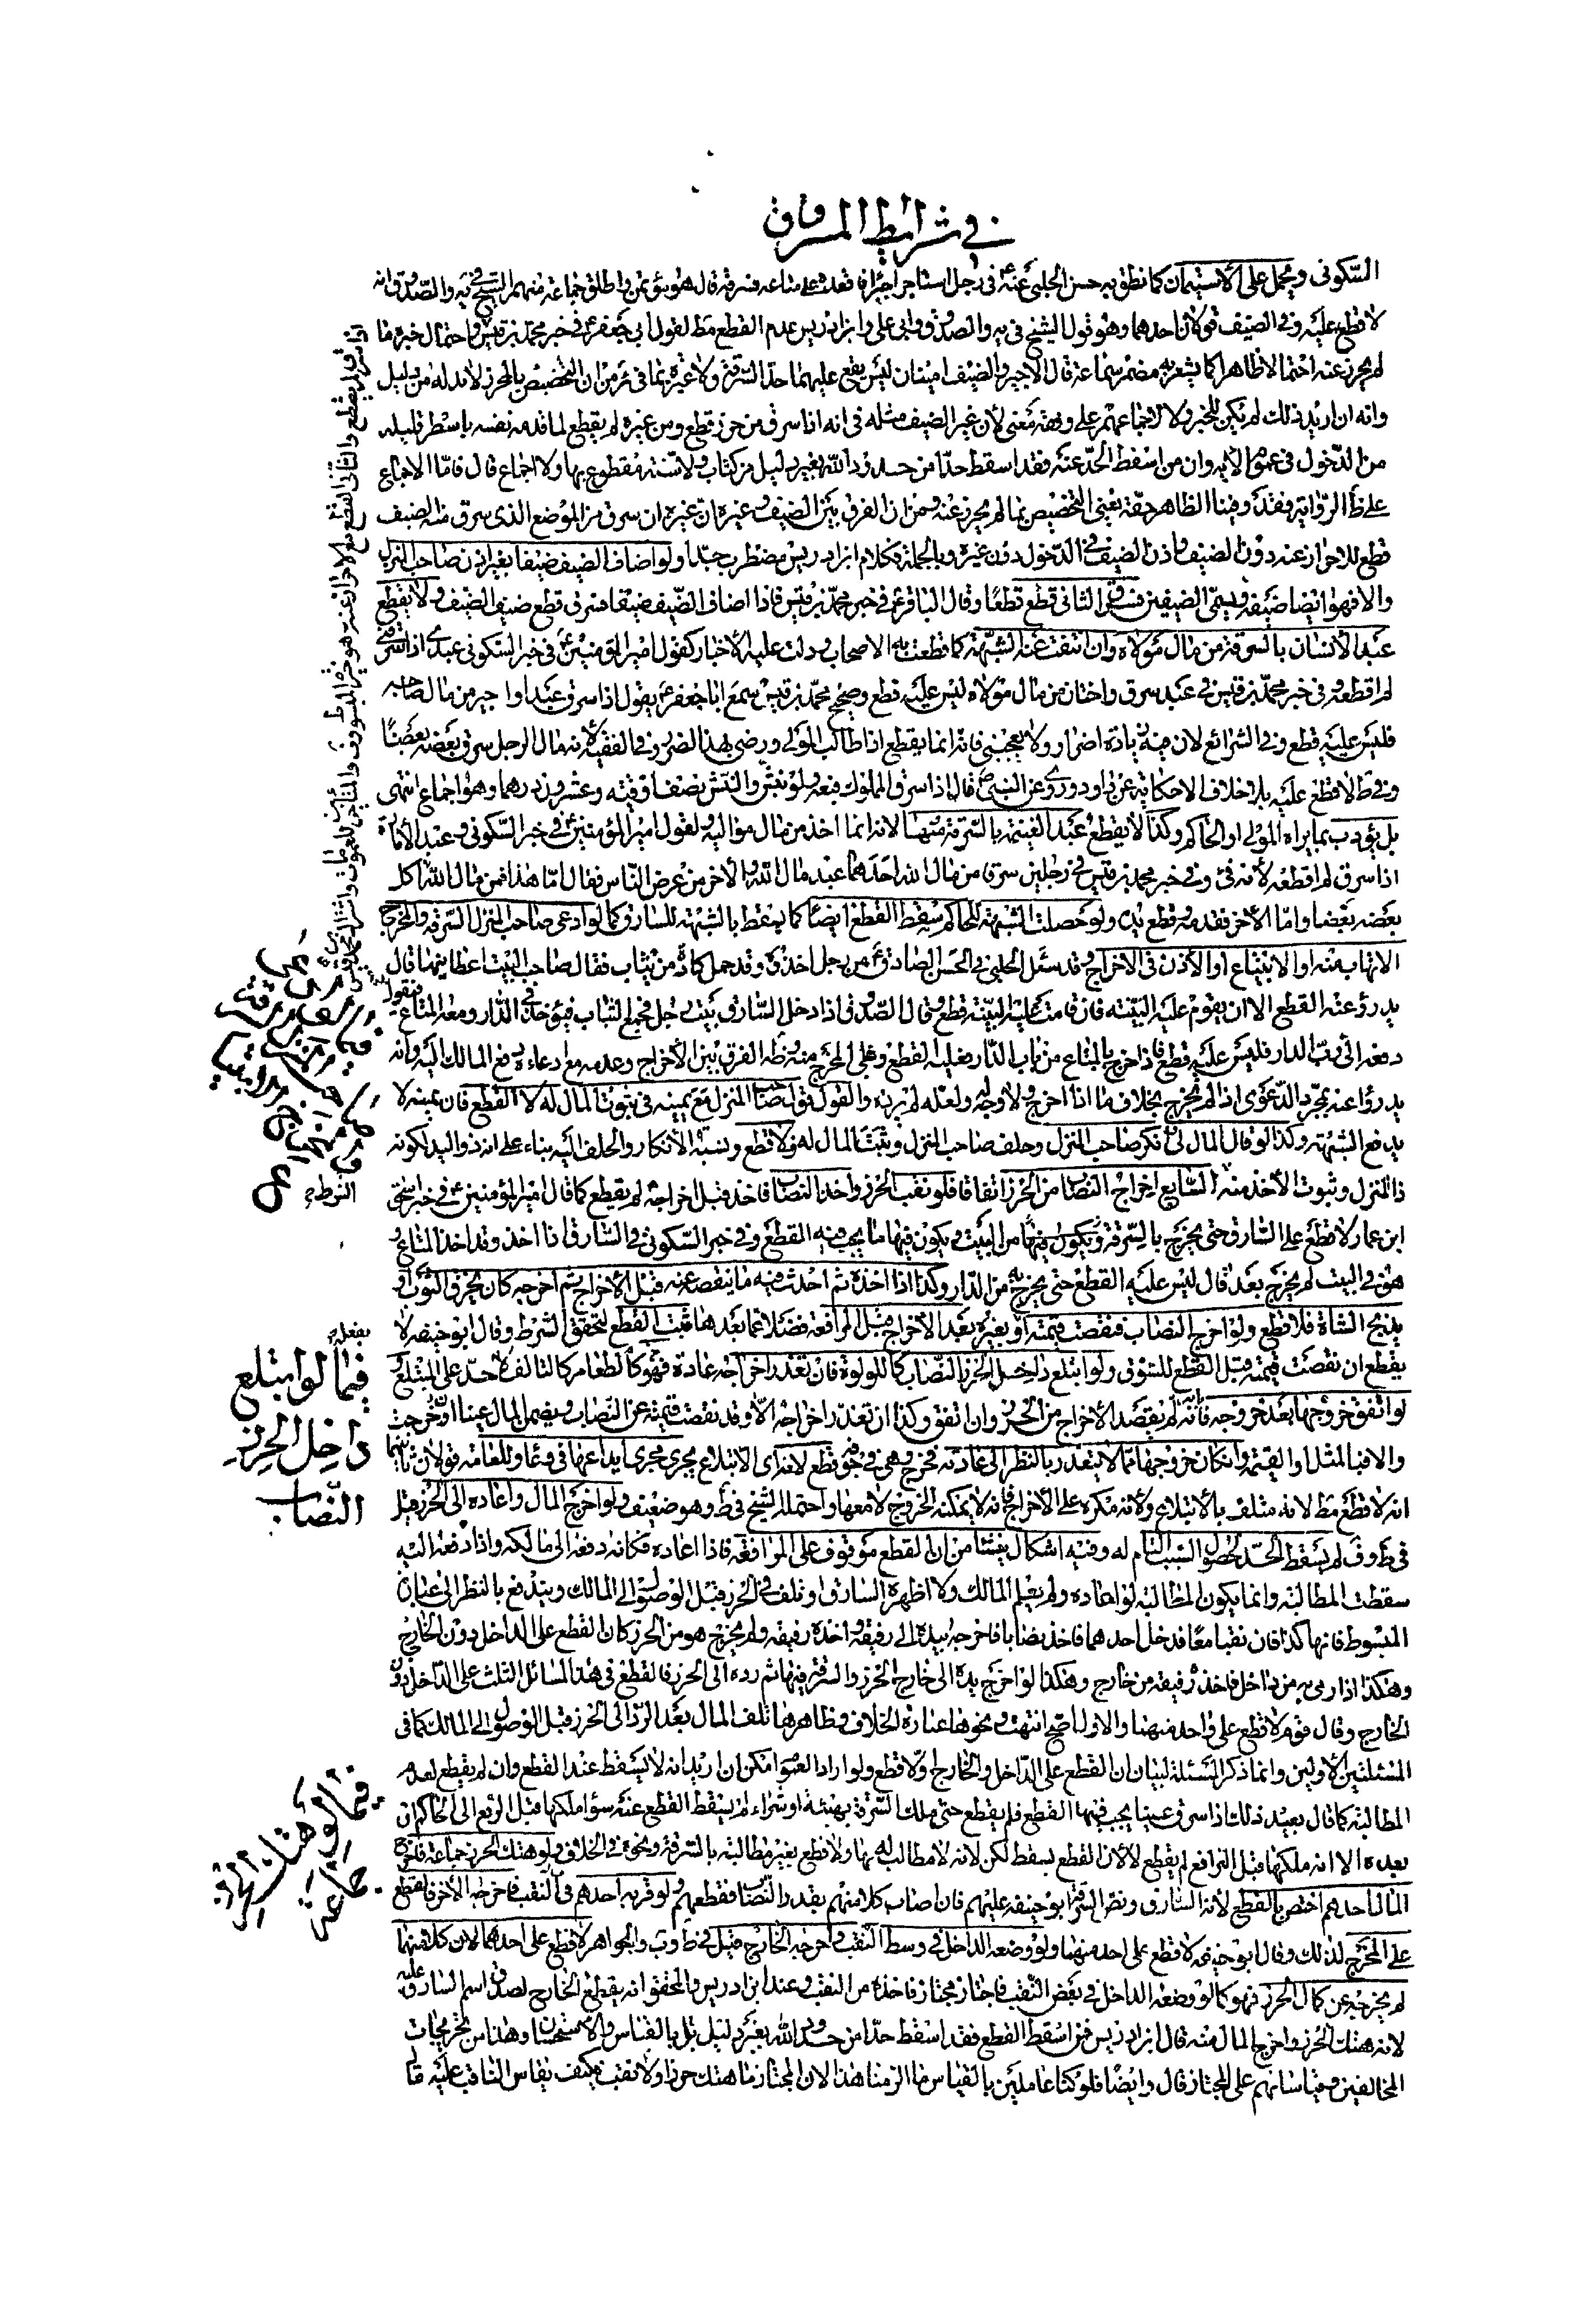 في شرائط المسروق
السكونى ويحمل على الاستيمان كما نطق به حسن الحلبي عنه في رجل استاجر اجيرا فاقعده على متاعه فسرقه قال هو مؤتمن واطلق جماعة منهم الشيخ في يه والصدوق انه
لا قطع عليه وفي الضيف قولان احدهما وهو قول الشيخ في يه والصدوق وابى على وابن ادريس عدم القطع مط لقول ابى جعفر ع في خبر محمد بن قيس واحتمال خبره ما
لم يحرز عنه احتمالا ظاهرا كما يشعر به مضمر سماعة قال الاجير والضيف امينان ليس يقع عليهما حد السرقة ولا غيره بما في ئر من ان التخصيص بالمحرز لا بد له من دليل
وانه ان اريد ذلك لم يكن للخبر ولا لاجماعهم على وفقه معنى لان غير الضيف مثله في انه اذا سرق من حرز قطع ومن غيره لم يقطع لما قدمه نفسه باسطر قليله
من الدخول في عموم الاية وان من اسقط الحد عنه فقد اسقط حدا من حدود الله بغير دليل من كتاب ولا سنة مقطوع بها ولا اجماع قال فاما الاجماع
على ظ الرواية فقد وفينا الظاهر حقه يعنى التخصيص بما لم يحرز عنه ومن ان الفرق بين الضيف وغيره ان غيره ان سرق من الموضع الذى سرق منه الضيف
قطع للاحراز عنه دون الضيف لاذن الضيف في الدخول دون غيره وبالجملة فكلام ابن ادريس مضطرب جدا ولو اضاف الضيف ضيفا بغير اذن صاحب المنزل
والا فهو ايضا ضيفه ويسمى الضيفين فسرق الثانى قطع قطعا وقال الباقر ع في خبر محمد بن قيس فاذا اضاف الضيف ضيفا فسرق قطع ضيف الضيف ولا يقطع
عبد الانسان بالسرقة من مال مولاه وان انتفت عنه الشبهة كما قطعت به الاصحاب ودلت عليه الاخبار كقول امير المؤمنين ع في خبر السكونى عبدى اذا سرقنى
لم اقطعه وفي خبر محمد بن قيس في عبد سرق واختان من مال مولاه ليس عليه قطع وصحيح محمد بن قيس سمع ابا جعفر ع يقول اذا سرق عبد او اجير من مال صاحبه
فليس عليه قطع وفي الشرائع لان فيه زيادة اضرار ولا يعجبنى فانه انما يقطع اذا طالب المولى ورضى بهذا الضرر وفي الفقيه لانه مال الرجل سرق بعضه بعضا
وفي ط لا قطع عليه بلا خلاف الا حكاية عن داود وروى عن النبى ص قال اذا سرق المملوك فبعه ولو بنش والنش نصف اوقية وعشرون درهما وهو اجماع انتهى
بل يؤدب بما يراه المولى او الحاكم وكذا لا يقطع عبد الغنيمة بالسرقة منها لانه انما اخذ من مال مواليه ولقول امير المؤمنين ع في خبر السكونى وعبد الامارة
اذا سرق لم اقطعه لانه فئ وفي خبر محمد بن قيس في رجلين سرقا من مال الله احدهما عبد مال الله والاخر من عرض الناس فقال اما هذا فمن مال الله اكل
بعضه بعضا واما الاخر فقدمه وقطع يده ولو حصلت الشبهة للحاكم سقط القطع ايضا كما يسقط بالشبهة للسارق كما لو ادعى صاحب المنزل السرقة والمخرج
الاتهاب منه او الابتياع او الاذن في الاخراج وقد سئل الحلبي في الحسن الصادق ع من رجل اخذوه وقد حمل كارة من ثياب فقال صاحب البيت اعطانيها قال
يدرؤ عنه القطع الا ان يقوم عليه البينة فان قامت عليه البينة قطع وقال الصدوق اذا دخل السارق بيت رجل فجمع الثياب فيؤخذ في الدار ومعه المتاع فيقول
دفعه الى رب الدار فليس عليه قطع فاذا خرج بالمتاع من باب الدار فعليه القطع وعلى المخرج منه وظه الفرق بين الاخراج وعدمه مع ادعاء دفع المالك اليه وانه
يدرؤا عنه بمجرد الدعوى اذا لم يخرج بخلاف ما اذا اخرج ولا وجه له ولعله لم يرده والقول قول صاحب المنزل مع يمينه في ثبوت المال له لا القطع فان يمينه لا
يدفع الشبهة وكذا لو قال المال لى فانكر صاحب المنزل وحلف صاحب المنزل ويثبت المال له ولا قطع ونسبة الانكار والحلف اليه بناء على انه ذو اليد لكونه
ذا المنزل وثبوت الاخذ منه السابع اخراج النصاب من الحرز اتفاقا فلو نقب الحرز واخذ النصاب فاخذ قبل اخراجه لم يقطع كما قال امير المؤمنين ع في خبر اسحق
ابن عمار لا قطع على السارق حتى يخرج بالسرقة من البيت ويكون فيها ما يجب فيه القطع وفي خبر السكونى في السارق اذا اخذ وقد اخذ المتاع و
هو في البيت لم يخرج بعد قال ليس عليه القطع حتى يخرج به من الدار وكذا اذا اخذه ثم احدث فيه ما ينقصه عنه قبل الاخراج ثم اخرجه كان يخرق الثوب او
يذبح الشاة فلا قطع ولو اخرج النصاب فنقصت قيمته او بغيره بعد الاخراج قبل المرافعة فضلا عما بعدها ثبت القطع لتحقق الشرط وقال ابو حنيفة لا
يقطع ان نقصت قيمته قبل القطع للسوق ولو ابتلع داخل الحرز النصاب كاللولوة فان تعذر اخراجه عادة فهو كالطعام كالتالف لا حد على المبتلع
لو اتفق خروجها بعد خروجه فانه لم يقصد الاخراج من الحرز وان اتفق وكذا ان تعذر اخراجه الا وقد نقصت قيمته عن النصاب ويضمن المال عينا ان خرجت
والا فبالمثل او القيمة وان كان خروجها مما لا يتعذر بالنظر الى عادته فخرج وهى في جوفه قطع لانه اى الابتلاع يجرى مجرى ايداعها في وعاء وللعامة قولان ثانيهما
انه لا قطع مط لانه متلف بالابتلاع ولانه مكره على الاخراج فانه لا يمكنه الخروج الا معها واحتمله الشيخ في ط وهو ضعيف ولو اخرج المال واعاده الى الحرز قيل
في ط وف لم يسقط الحد لحصول السبب التام له وفيه اشكال ينشأ من ان القطع موقوف على المرافعة فاذا اعاده فكانه دفعه الى مالكه واذا دفعه اليه
سقطت المطالبة وانما يكون المطالبة لو اعاده ولم يعلم المالك ولا اظهره السارق او تلف في الحرز قبل الوصول الى المالك ويندفع بالنظر الى عبارة
المبسوط فانها كذا فان نقبا معا فدخل احدهما فاخذ نصابا فاخرجه بيده الى رفيقه واخذه رفيقه ولم يخرج هو من الحرز كان القطع على الداخل دون الخارج
وهكذا اذا رمى به من داخل فاخذه رفيقه من خارج وهكذا لو اخرج يده الى خارج الحرز والسرقة فيها ثم رده الى الحرز فالقطع في هذه المسائل الثلث على الداخل دون
الخارج وقال قوم لا قطع على واحد منهما والاول اصح انتهت ونحوها عبارة الخلاف وظاهرها تلف المال بعد الرد الى الحرز قبل الوصول الى المالك كما في
المسئلتين الاوليين وانما ذكر المسئلة لبيان ان القطع على الداخل والخارج اولا قطع ولو اراد العموم امكن ان اريد انه لا يسقط عند القطع وان لم يقطع لعدم
المطالبة كما قال بعيد ذلك اذا سرق عينا يجب فيها القطع فلم يقطع حتى ملك السرقة بهبة او شراء لم يسقط القطع عنه سواء ملكها قبل الرفع الى الحاكم او
بعده الا انه ملكها قبل الترافع لم يقطع لا لان القطع يسقط لكن لانه لا مطالب له بها ولا قطع بغير مطالبة بالسرقة ونحوه في الخلاف ولو هتك الحرز جماعة فاخرج
المال احدهم اختص بالقطع لانه السارق وفض السرقة ابو حنيفة عليهم فان اصاب كلا منهم بقدر النصاب قطعهم ولو قربه احدهم في النقب فاخرجه الاخر فالقطع
على المخرج لذلك وقال ابو حنيفة لا قطع على احد منهما ولو وضعه الداخل في وسط النقب فاخرجه الخارج قيل في ط وئب والجواهر لا قطع على احدهما لان كلا منهما
لم يخرجه عن كمال الحرز فهو كما لو وضعه الداخل في بعض النقب فاجتاز مجتاز فاخذه من النقب وعند ابن ادريس والمحقق انه يقطع الخارج لصدق اسم السارق عليه
لانه هتك الحرز واخرج المال منه قال ابن ادريس فمن اسقط القطع فقد اسقط حدا من حدود الله بغير دليل بل بالقياس والاستحسان وهذا من تخريجات
المخالفين وقياساتهم على المجتاز قال وايضا فلو كنا عاملين بالقياس ما الزمنا هذا لان المجتاز ما هتك حرزا ولا نقب فكيف يقاس الناقب عليه قال
بفعله
فيما لو ابتلع
داخل الحرز
النصاب
فيما لو هتك الحرز
جماعة